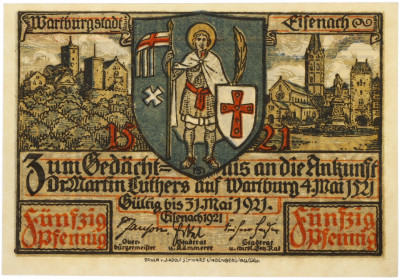 Wartburgstadt Eisenach
15 21
Zum Gedächt= nis an die Ankunft
Dr Martin Luthers auf Wartburg 4. Mai 1521
Gültig bis 31. Mai 1921.
Eisenach 1921
Fünfzig Pfennig
Fünfzig Pfennig
Ober-bürgermeister
Stadtrat u. Kämmerer
Stadtrat